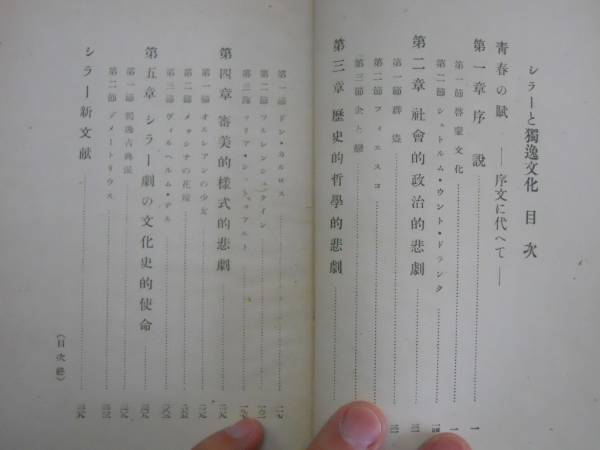 シラーと獨逸文化 目次
青春の賦 ――序文に代へて――
第一章 序說 一
第一節 啓蒙文化 一
第二節 シュトルム・ウント・ドランク
第二章 社會的政治的悲劇
第一節 群盜
第二節 フィエスコ
第三節 企と戀
第三章 歷史的哲學的悲劇
第一節 ドン・カルロス
第二節 ワレンシュタイン
第三節 マリア・ストゥアルト
第四章 審美的樣式的悲劇
第一節 オルレアンの少女
第二節 メッシナの花嫁
第三節 ヴィルヘルム・テル
第五章 シラー劇の文化史的使命
第一節 獨逸古典派
第二節 デメートリウス
シラー新文献
(目次終)